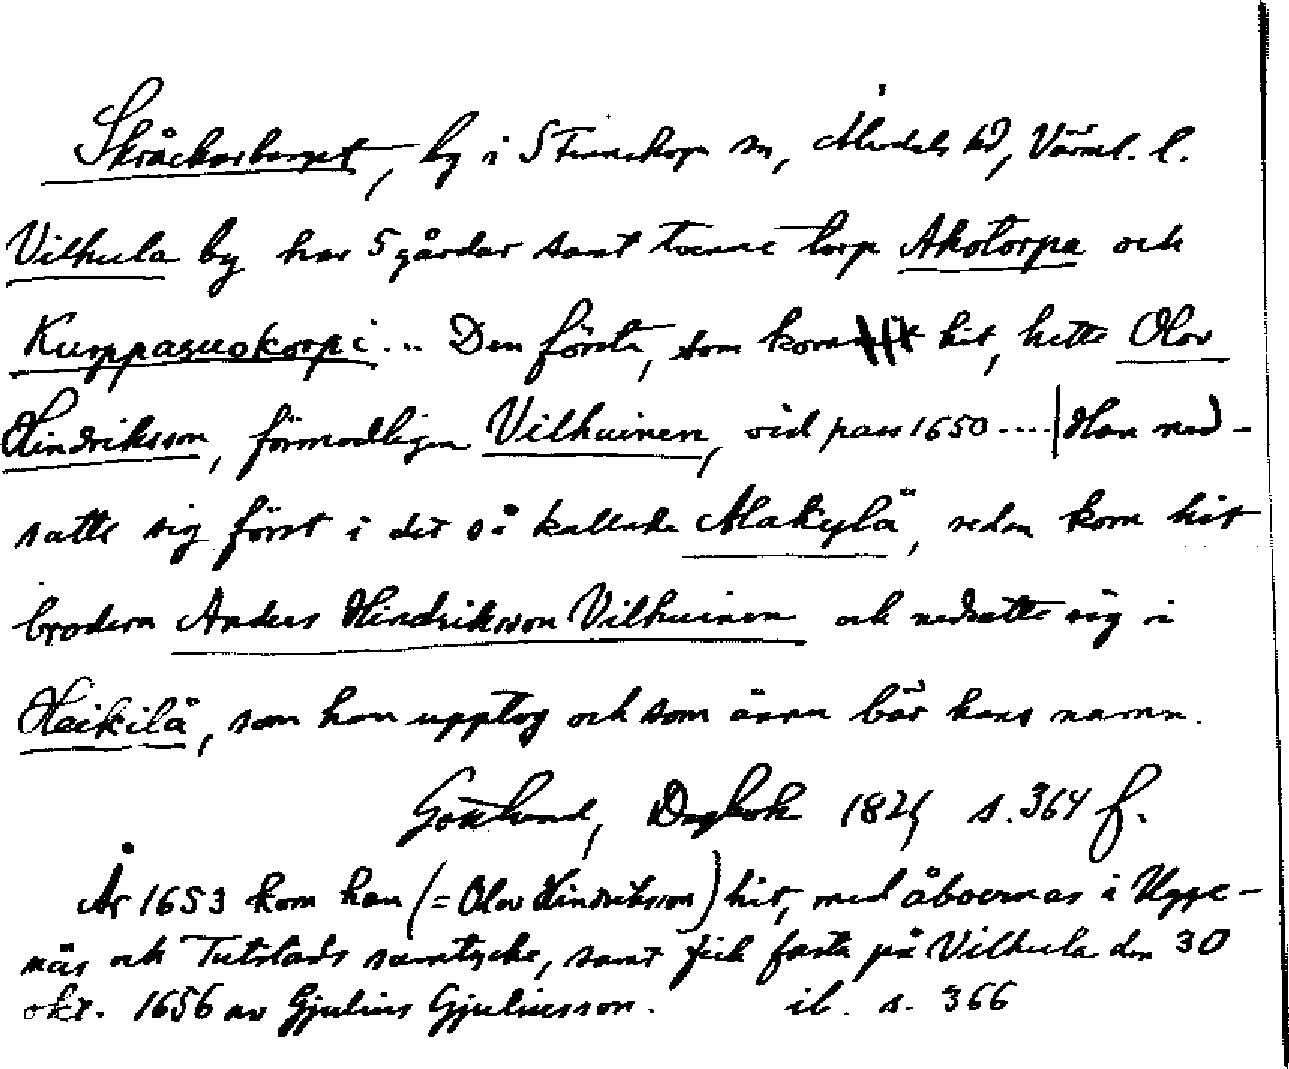 Skråckarberget, by i S Finnskoga sn, Älvdals hd, Värml. l.
Vilhula by har 5 gårdar samt tvenne torp Ahotorpa och
Kurppasuokorpi... Den första, som kom hit, hette Olov
Hindriksson, förmodligen Vilhuinen, vid pass 1650 .... | Han ned-
satte sig först i det så kallade Alakylä, sedan kom hit
brodern Anders Hindriksson Vilhuinen och nedsatte sig i
Heikilä, som han upptog och som ännu bär hans namn.
Gottlund, Dagbok 1821 s. 364 f.
År 1653 kom han (= Olov Hindriksson) hit, med åboernas i Uppe-
näs och Tutstads samtycke, samt fick fasta på Vilhula den 30
okt. 1656 av Gjulius Gjuliusson. ib. s. 366